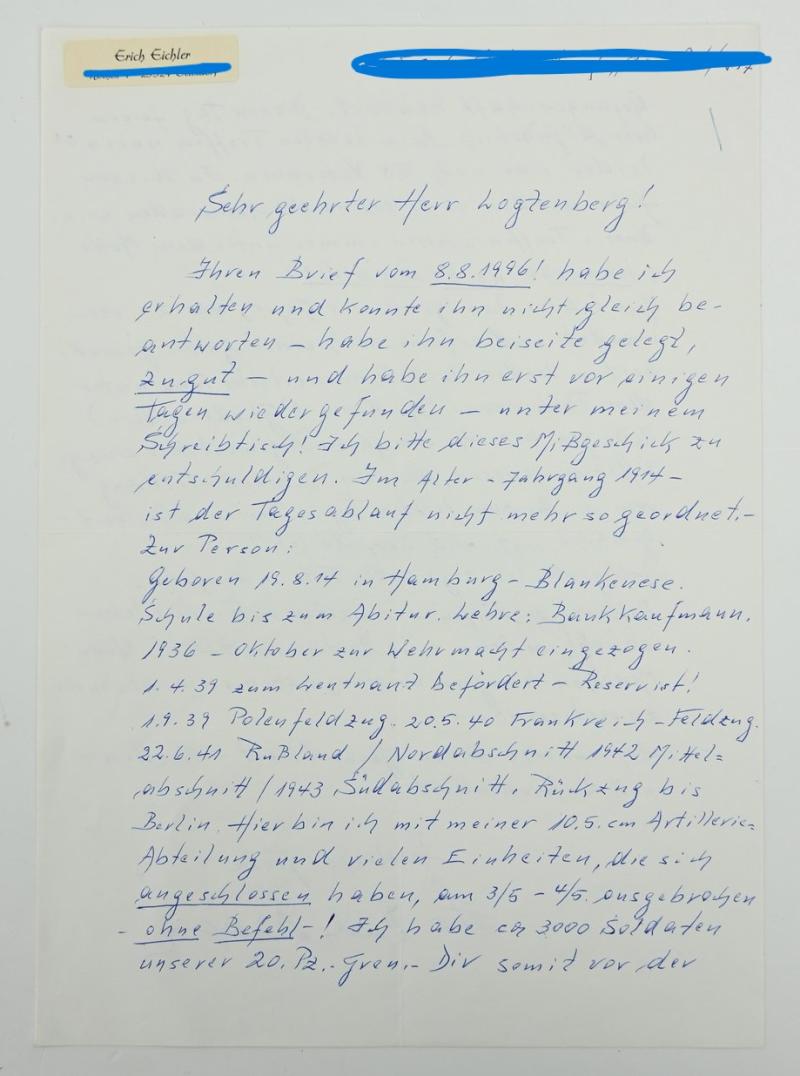 Erich Eichler
Sehr geehrter Herr Logtenberg!
Ihren Brief vom 8.8.1996! habe ich
erhalten und konnte ihn nicht gleich be-
antworten – habe ihn beiseite gelegt,
zu gut – und habe ihn erst vor einigen
Tagen wiedergefunden – unter meinem
Schreibtisch! Ich bitte dieses Mißgeschick zu
entschuldigen. Im Alter – Jahrgang 1914 –
ist der Tagesablauf nicht mehr so geordnet. –
Zur Person:
Geboren 19.8.14 in Hamburg – Blankenese.
Schule bis zum Abitur. Lehre: Bankkaufmann.
1936 – Oktober zur Wehrmacht eingezogen.
1.4.39 zum Leutnant befördert – Reservist!
1.9.39 Polenfeldzug. 20.5.40 Frankreich – Feldzug.
22.6.41 Rußland / Nordabschnitt 1942 Mittel=
abschnitt / 1943 Südabschnitt. Rückzug bis
Berlin. Hier bin ich mit meiner 10.5. cm Artillerie=
Abteilung und vielen Einheiten, die sich
angeschlossen haben, am 3/5 – 4/5. ausgebrochen
– ohne Befehl –! Ich habe ca 3000 Soldaten
unserer 20. Pz. – Gren. – Div somit vor der